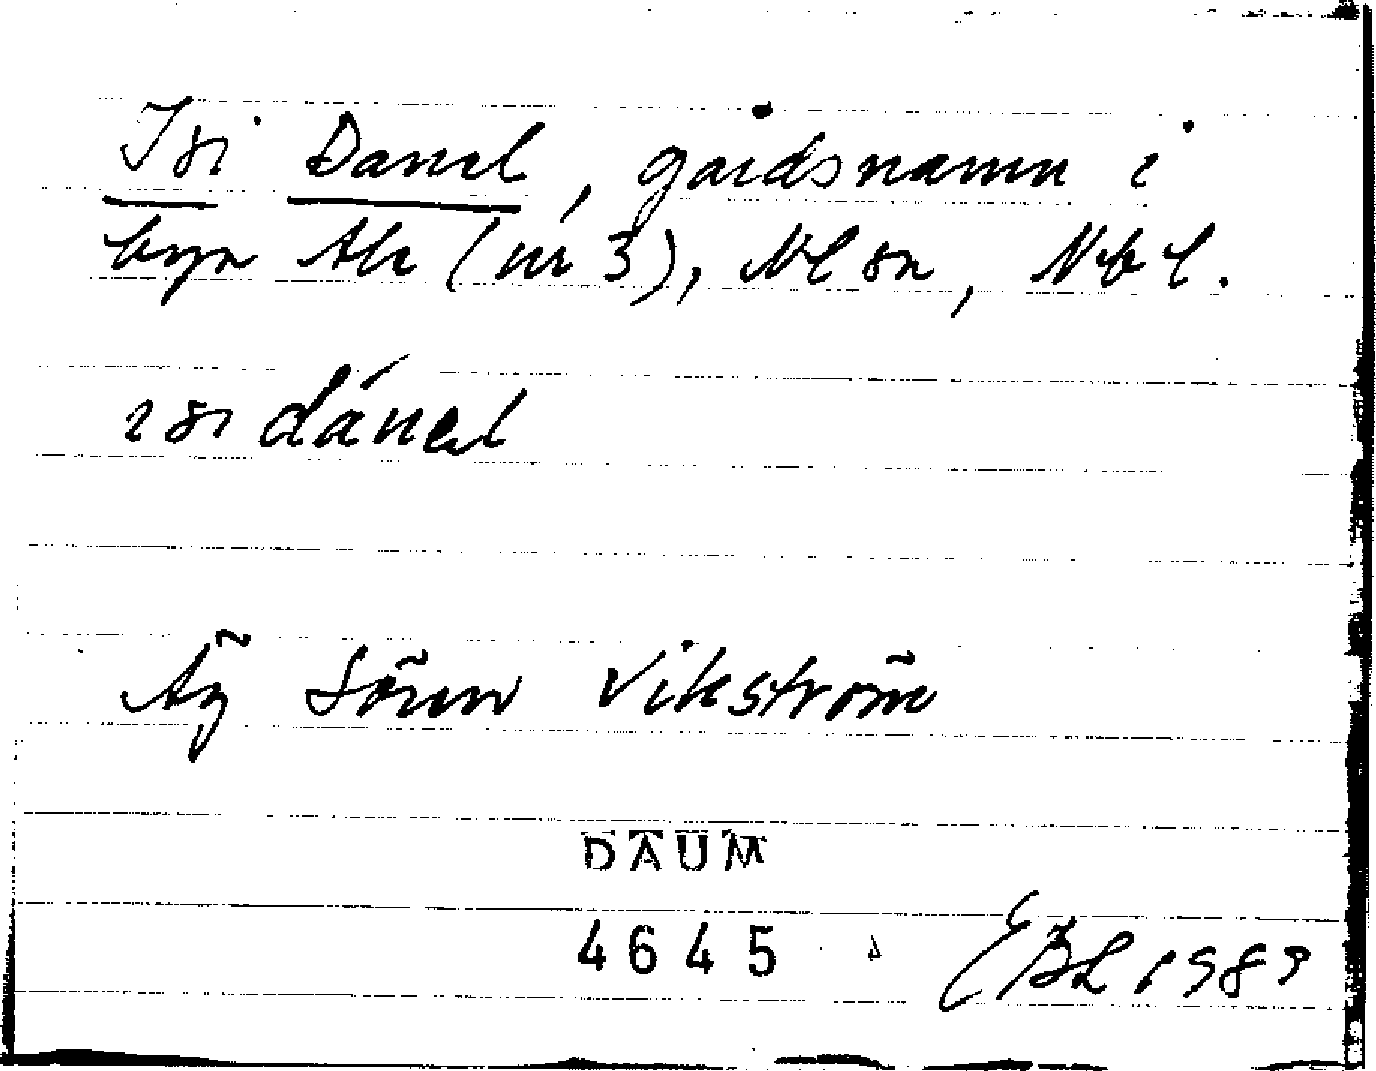 Isi Danel, gårdsnamn i
byn Ale (nr 3), Nl sn, Nbl.
isi dánel
Äg Sören Vikström
DAUM
4645
EBL 1989